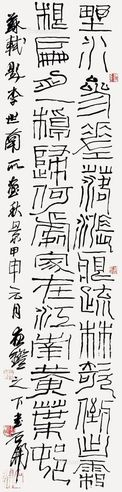 埜水參差落漲痕疏林欹倒出霜
根扁舟一棹歸何處家在江南黃葉邨
蘇軾題李世南所畫秋景甲申元月之下